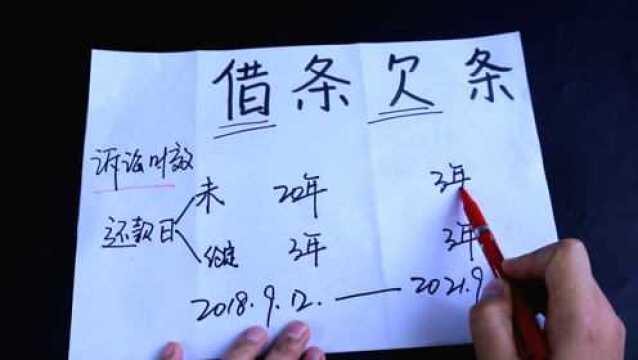 借条 欠条
诉讼时效
还款日
未 20年 3年
约定 3年 3年
2018.9.12.——2021.9